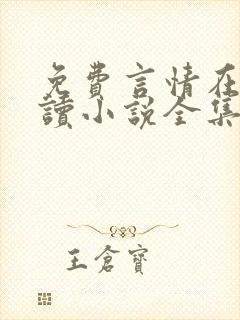 免費言情在
讀小說全集
王倉寶